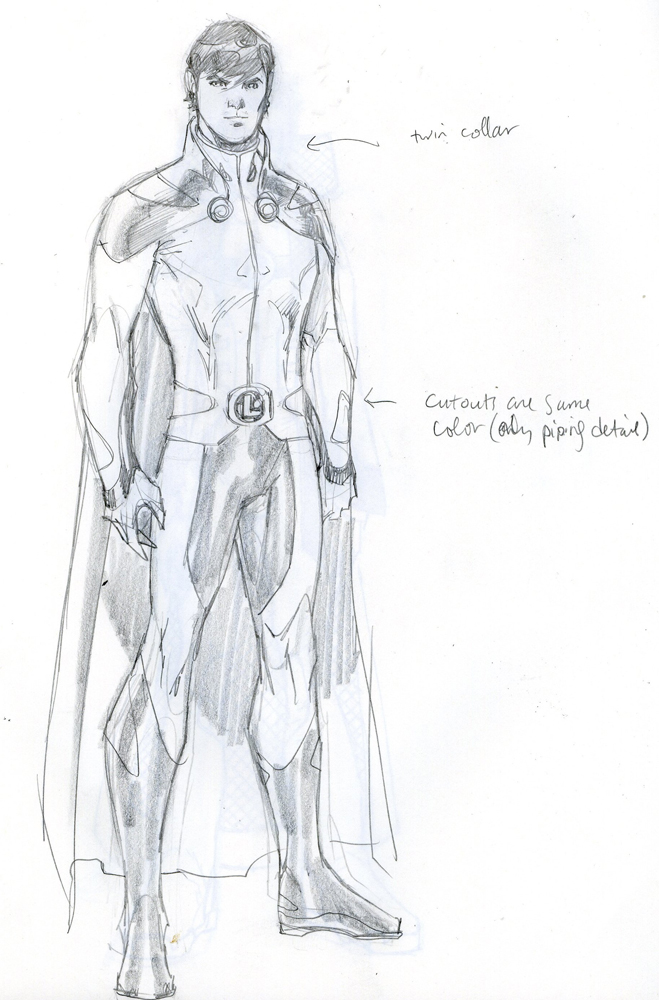 twin collar
cutouts are same
color (only piping detail)
L